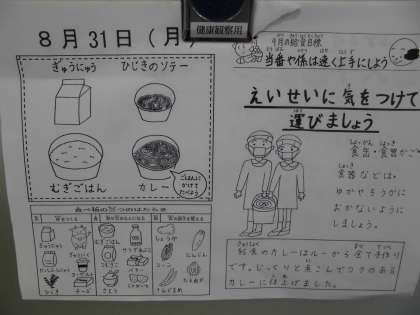 健康観察用
8月31日（月）
ぎゅうにゅう
ひじきのソテー
むぎごはん
カレー
ごはんに
かけて
たべよう
9月の給食目標
当番や係は速く上手にしよう
えいせいに気をつけて
運びましょう
食缶・食器かご
食器などは、
ゆかやろうかに
おかないように
しましょう。
ぎゅうにゅう
むぎごはん
しょうが
にんじん
ぎゅうにく
コーン
チーズ
さとう
バター
えだまめ
給食のカレーはルーから全て手作り
です。じっくりと煮こんでコクのある
カレーに仕上げました。